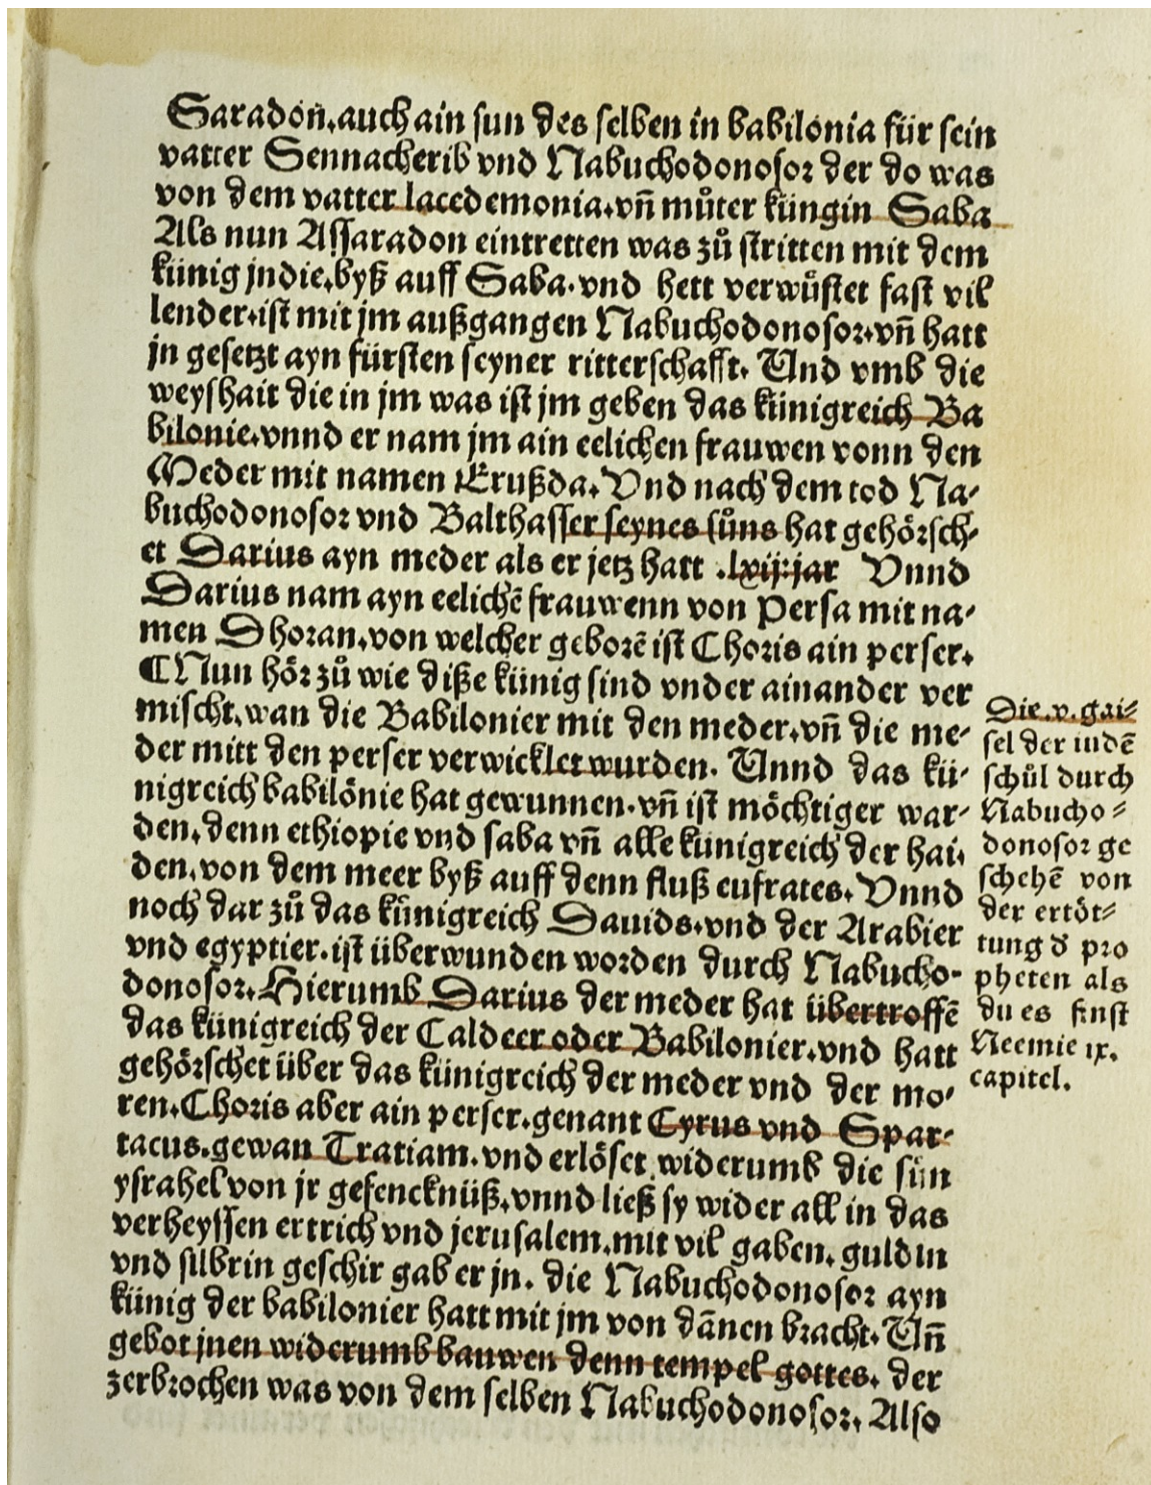 Saradon.auch ain sun des selben in babilonia für sein
vatter Sennacherib vnd Nabuchodonosor der do was
von dem vatter lacedemonia.vñ mů̈ter küngin Saba
Als nun Assaradon eintretten was zů stritten mit dem
künig jndie.byß auff Saba.vnd hett verwüstet fast vil
lender.ist mit jm außgangen Nabuchodonosor.vñ hatt
jn gesetzt ayn fürsten seyner ritterschafft. Und vmb die
weyshait die in jm was ist jm geben das künigreich Ba
bilonie.vnnd er nam jm ain eelichen frauwen vonn den
Meder mit namen Erußda. Vnd nach dem tod Na-
buchodonosor vnd Balthasser seynes sůns hat gehörsch-
et Darius ayn meder als er jetz hatt .lxij.jar Vnnd
Darius nam ayn eelichē frauwenn von Persa mit na-
men Dhoran.von welcher geborē ist Choris ain perser.
¶Nun hör zů wie diße künig sind vnder ainander ver
mischt.wan die Babilonier mit den meder.vñ die me-
der mitt den perser verwicklet wurden. Unnd das kü-
nigreich babilönie hat gewunnen.vñ ist möchtiger war-
den.denn ethiopie vnd saba vñ alle künigreich der hai.
den.von dem meer byß auff denn fluß eufrates. Vnnd
noch dar zů das künigreich Dauids.vnd der Arabier
vnd egyptier.ist überwunden worden durch Nabucho-
donosor.Hierumb Darius der meder hat übertroffē
das künigreich der Caldeer oder Babilonier.vnd hatt
gehörschet über das künigreich der meder vnd der mo-
ren.Choris aber ain perser.genant Cyrus vnd Spar-
tacus.gewan Tratiam.vnd erlöset widerumb die sün
ysrahel von jr gefencknüß.vnnd ließ sy wider all in das
verheyssen ertrich vnd jerusalem.mit vil gaben.guldin
vnd silbrin geschir gab er jn. die Nabuchodonosor ayn
künig der babilonier hatt mit jm von dānen bracht. Uñ
gebot jnen widerumb bauwen denn tempel gottes. der
zerbrochen was von dem selben Nabuchodonosor. Also
Die.v.gai-
sel der iudē
schůl durch
Nabucho-
donosor ge
schehē von
der ertöt-
tung d pro
pheten als
du es finst
Neemie ix.
capitel.